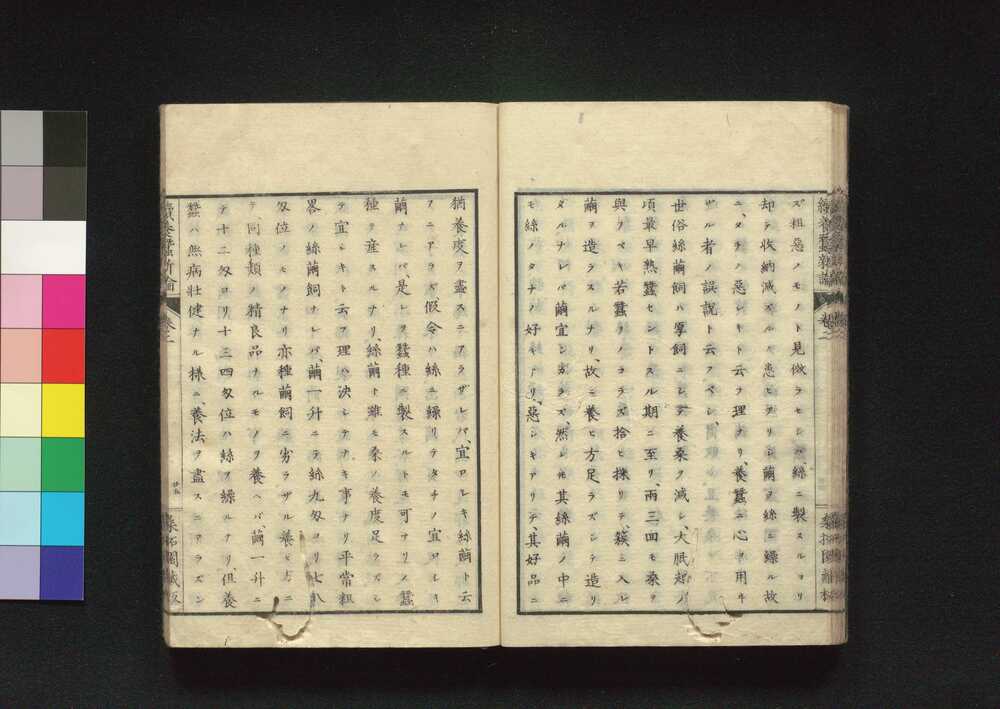 ズ粗惡ノモノト見做ラセシハ、絲ニ製スルヨリ
却テ收納減ズルノ患ヒアリシ繭ヲ絲ニ繰ル故
ニ、タチノ惡シキト云ヲ理ナリ、養蠶ニ心ヲ用キ
ザル者ノ誤說ト云フベシ、
世俗絲繭飼ハ厚飼ニシテ養桑ヲ減シ、大眠起ノ
頃最早熟蠶セントスル期ニ至リ、兩三回モ桑ヲ
與フベキ若蠶ヲノコラズ拾ヒ採リテ、簇ニ入レ
繭ヲ造ラスルナリ、故ニ養ヒ方足ラズシテ造リ
タルナレバ繭宜シカラズ、然レ𪜈其絲繭ノ中ニ
モ絲ノタチノ好キアリ、惡シキアリテ、其好品ニ
猶養度ヲ盡スニアラザレバ、宜ロシキ絲繭ト云
フニアラズ、假令ハ絲ニ繰リテタチノ宜ロシキ
繭ナレバ、是レヲ蠶種ニ製スルトモ可ナリノ蠶
種ヲ產スルナリ、絲繭ト雖モ桑ノ養度足ラズシ
テ宜シキト云フ理ハ決シテナキ事ナリ平常粗
畧ノ絲繭飼ナレバ、繭一升ニテ絲九匁ヨリ七八
匁位ノモノナリ亦種繭飼ニ劣ラザル養ヒ方ニ
テ、同種類ノ精良品ナルモノヲ養ヘバ、繭一升ニ
テ十二匁ヨリ十三四匁位ハ絲ヲ繰ルナリ、但養
蠶ハ無病壯健ナル樣ニ、養法ヲ盡スニアラズン
續養蠶新論
卷之
廿五
桑柘園藏版